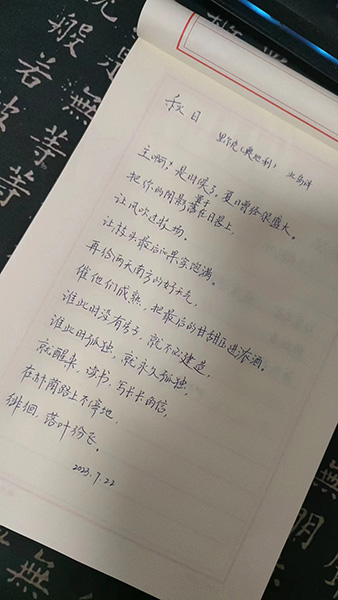 秋日
里尔克（奥地利） 北岛译
主啊，是时候了，夏日曾经很盛大。
置于
把你的阴影落在日晷上，
让风吹过牧场。
让枝头最后的果实饱满。
再给两天南方的好天气，
催他们成熟，把最后的甘甜压进浓酒。
谁此时没有房子，就不必建造，
谁此时孤独，就永久孤独，
就醒来，读书，写长长的信，
在林荫路上不停地，
徘徊，落叶纷飞。
2023.7.22
般若
是無等等
無
無
明